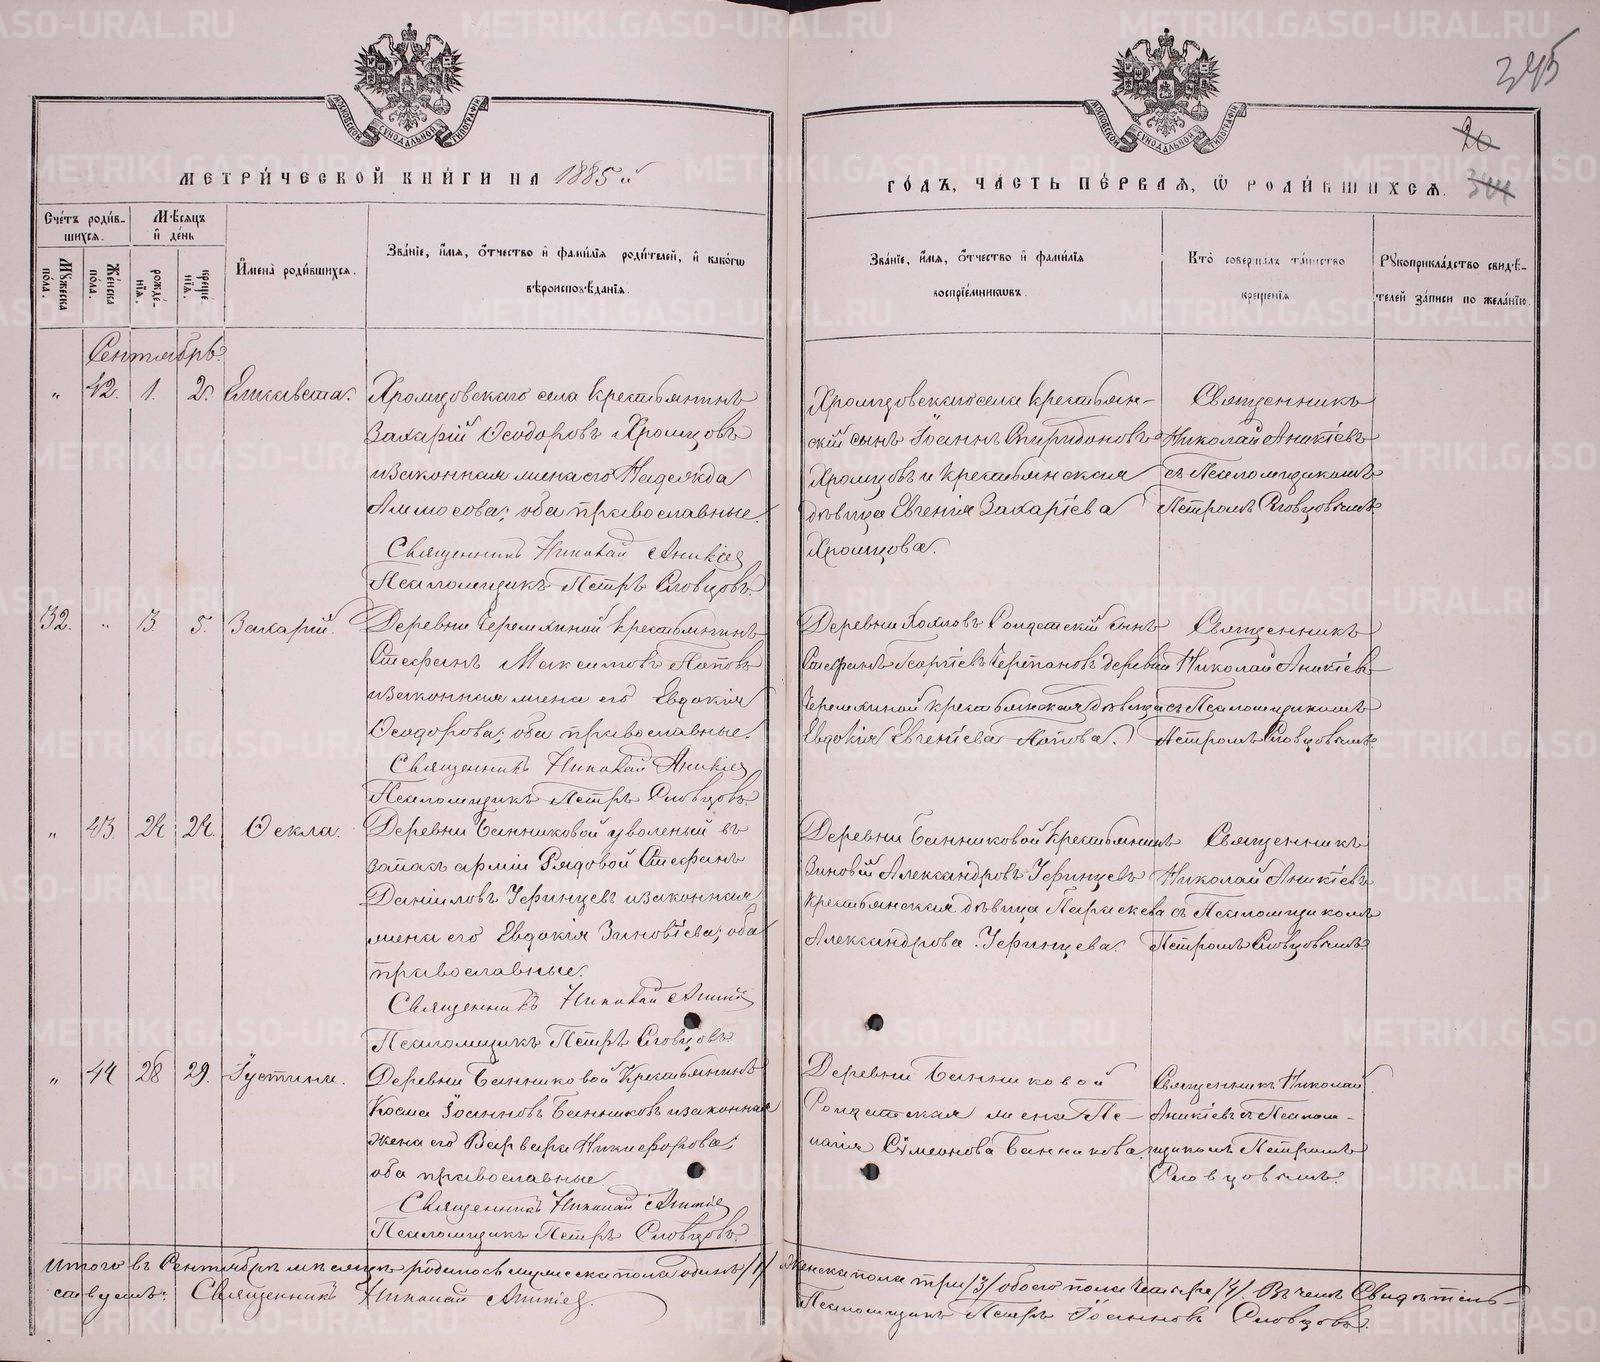 345
20
344
МОСКОВСКОЙ СѴНОДАЛЬНОЙ ТИПОГРАФІИ
МОСКОВСКОЙ СѴНОДАЛЬНОЙ ТИПОГРАФІИ
МЕТРИ́ЧЕСКОЙ КНИ́ГИ НА 1885й
ГО́ДЪ, ЧА́СТЬ ПЕ́РВАЯ, Ѡ҆ РОДИ́ВШИХСЯ.
Сче́тъ роди́вшихся.
Мꙋ́жеска по́ла.
Же́нска по́ла.
Мѣ́сяцъ и҆ де́нь
рожде́нія.
креще́нія.
И҆мена̀ роди́вшихся.
Зва́ніе, и҆́мя, ѻ҆́тчество и҆ фами́лія роди́телей, и҆ како́гѡ вѣроисповѣ́данія.
Зва́ніе, и҆́мя, ѻ҆́тчество и҆ фами́лія воспріе́мникѡвъ.
Кто̀ соверша́лъ та́инство креще́нія
Рꙋкоприкла́дство свидѣ́телей за́писи по жела́нію.
Сентябрь.
„ 42. 1. 2. Елисавета.
Хромцовскаго села крестьянинъ
Захарій Ѳеодоровъ Хромцовъ
и законная жена его Надежда
Аммосова; оба православные.
Священникъ Николай Аникіев
Псаломщикъ Петръ Словцовъ.
Хромцовскаго села крестьян-
скій сынъ Іоаннъ Спиридоновъ
Хромцовъ и крестьянская
дѣвица Евгенія Захаріева
Хромцова.
Священникъ
Николай Аникіевъ
съ Псаломщикомъ
Петромъ Словцовымъ.
32. „ 3 5. Захарій.
Деревни Черемхиной крестьянинъ
Стефанъ Максимовъ Поповъ
и законная жена его Евдокія
Ѳеодорова; оба православные.
Священникъ Николай Аникіев
Псаломщикъ Петръ Словцовъ
Стефанъ Георгіевъ Черепановъ деревни
Черемхиной крестьянская дѣвица
Евдокія Евгеніева Попова.
Священникъ
Николай Аникіевъ
съ Псаломщикомъ
Петромъ Словцовымъ.
„ 43 24 24. Ѳекла.
Деревни Банниковой уволеный въ
запас арміи Рядовой Стефанъ
Даниловъ Уфинцевъ и законная
жена его Евдокія Зиновіева; оба
православные.
Священникъ Николай Аникіев
Псаломщикъ Петръ Словцовъ
Деревни Банниковой Крестьянинъ
Зиновій Александровъ Уфинцевъ
крестьянская дѣвица Параскева
Александрова Уфинцева.
Священникъ
Николай Аникіевъ
съ Псаломщикомъ
Петромъ Словцовымъ
„ 44 28 29. Іустина.
Деревни Банниковой Крестьянинъ
Косма Іоанновъ Банниковъ и законная
жена его Варвара Никифорова;
оба православные.
Священникъ Николай Аникіев
Псаломщикъ Петръ Словцовъ.
Деревни Банниковой
Солдатская жена Пе-
лагія Сѵмеонова Банникова.
Священникъ Николай
Аникіевъ съ Псалом-
щикомъ Петромъ
Словцовымъ.
Итого въ Сентябрѣ мѣсяцѣ родилось мужеска пола одинъ /1/ женска пола три /3/ обоего пола четыре /4/. Въ чемъ Свидѣтель-
ствуемъ: Священникъ Николай Аникіев.
Псаломщикъ Петръ Іоанновъ Словцовъ.
METRIKI.GASO-URAL.RU